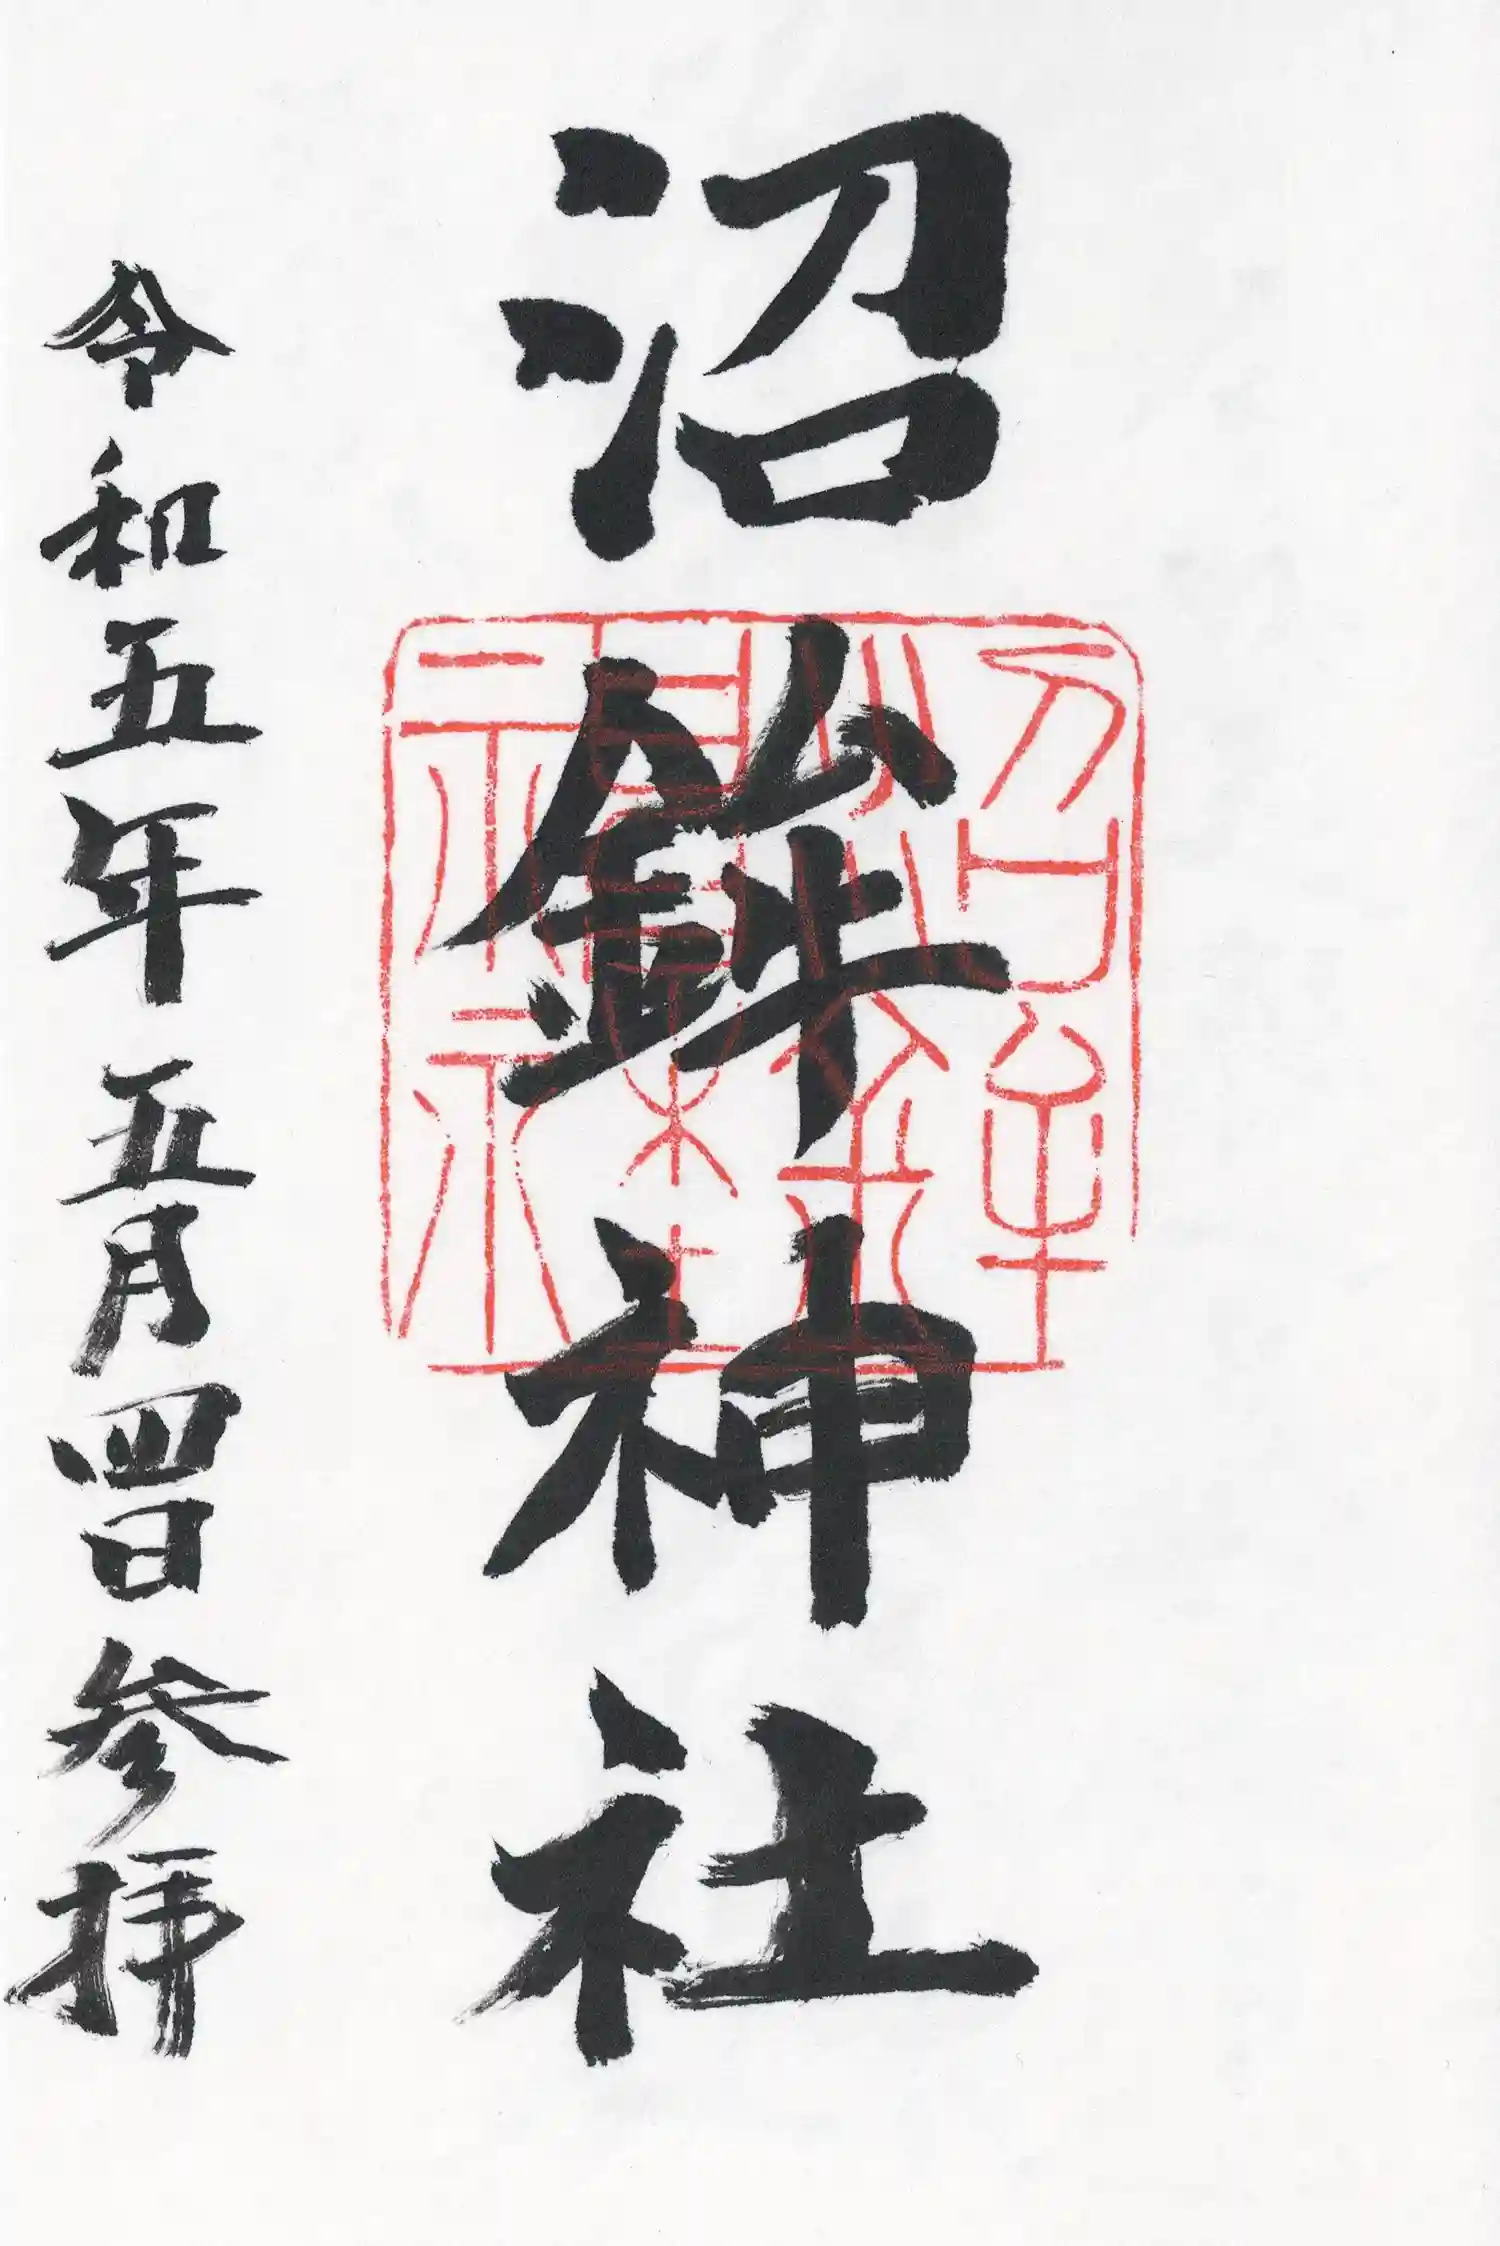 沼鉾神社
令和五年五月四日参拝